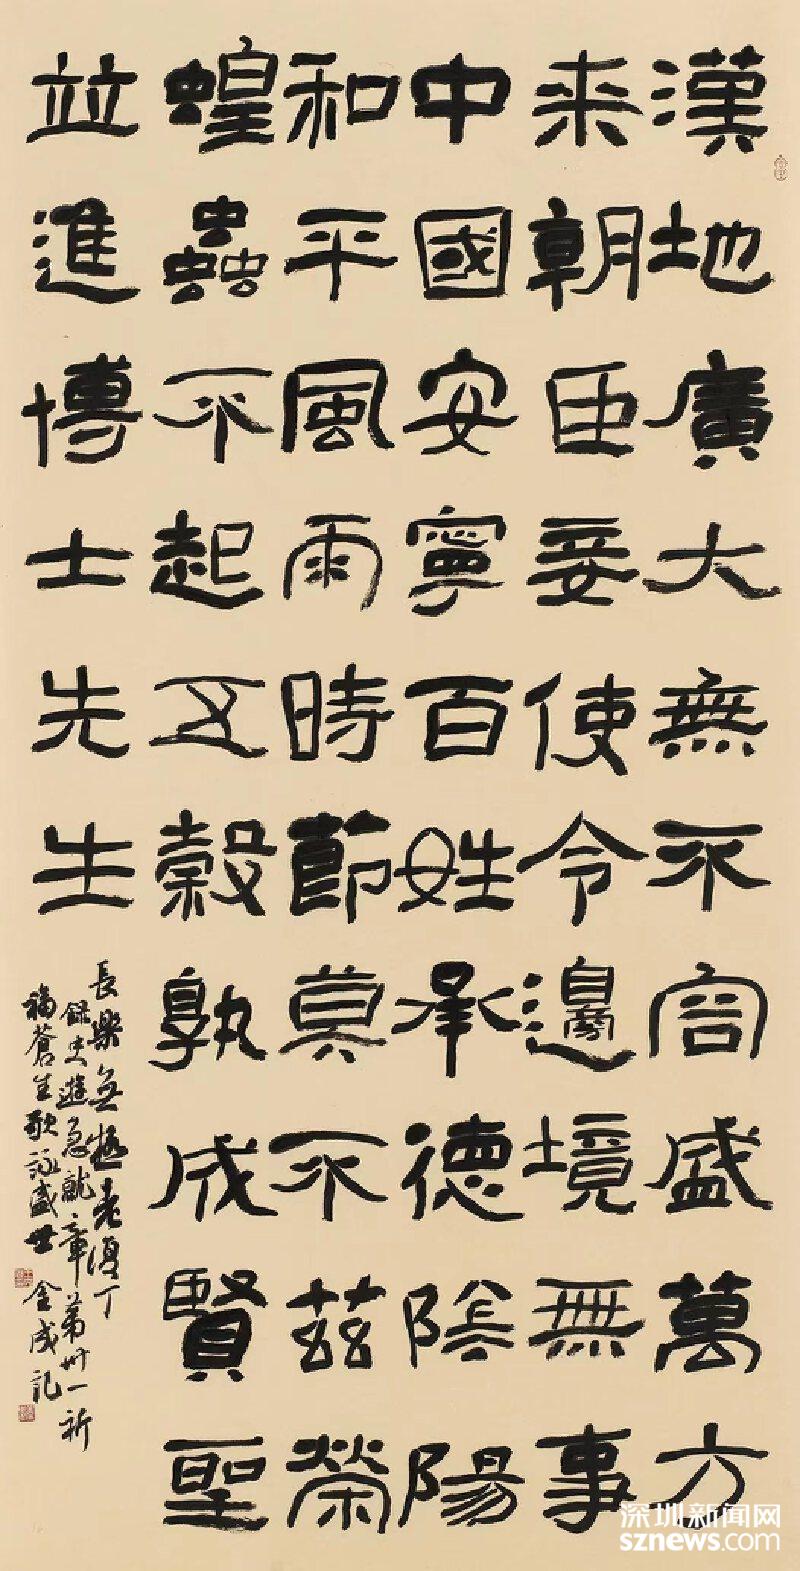 漢地廣大無不容盛萬方
来朝臣妾使令邊境無事
中國安寧百姓承德陰陽
和平風雨時節莫不茲榮
蝗蟲不起五穀孰成賢聖
竝進博士先生
長樂無極老復丁
錄史游急就章第卅一祈
福蒼生歌詠盛世 金成記
深圳新闻网
sznews.com